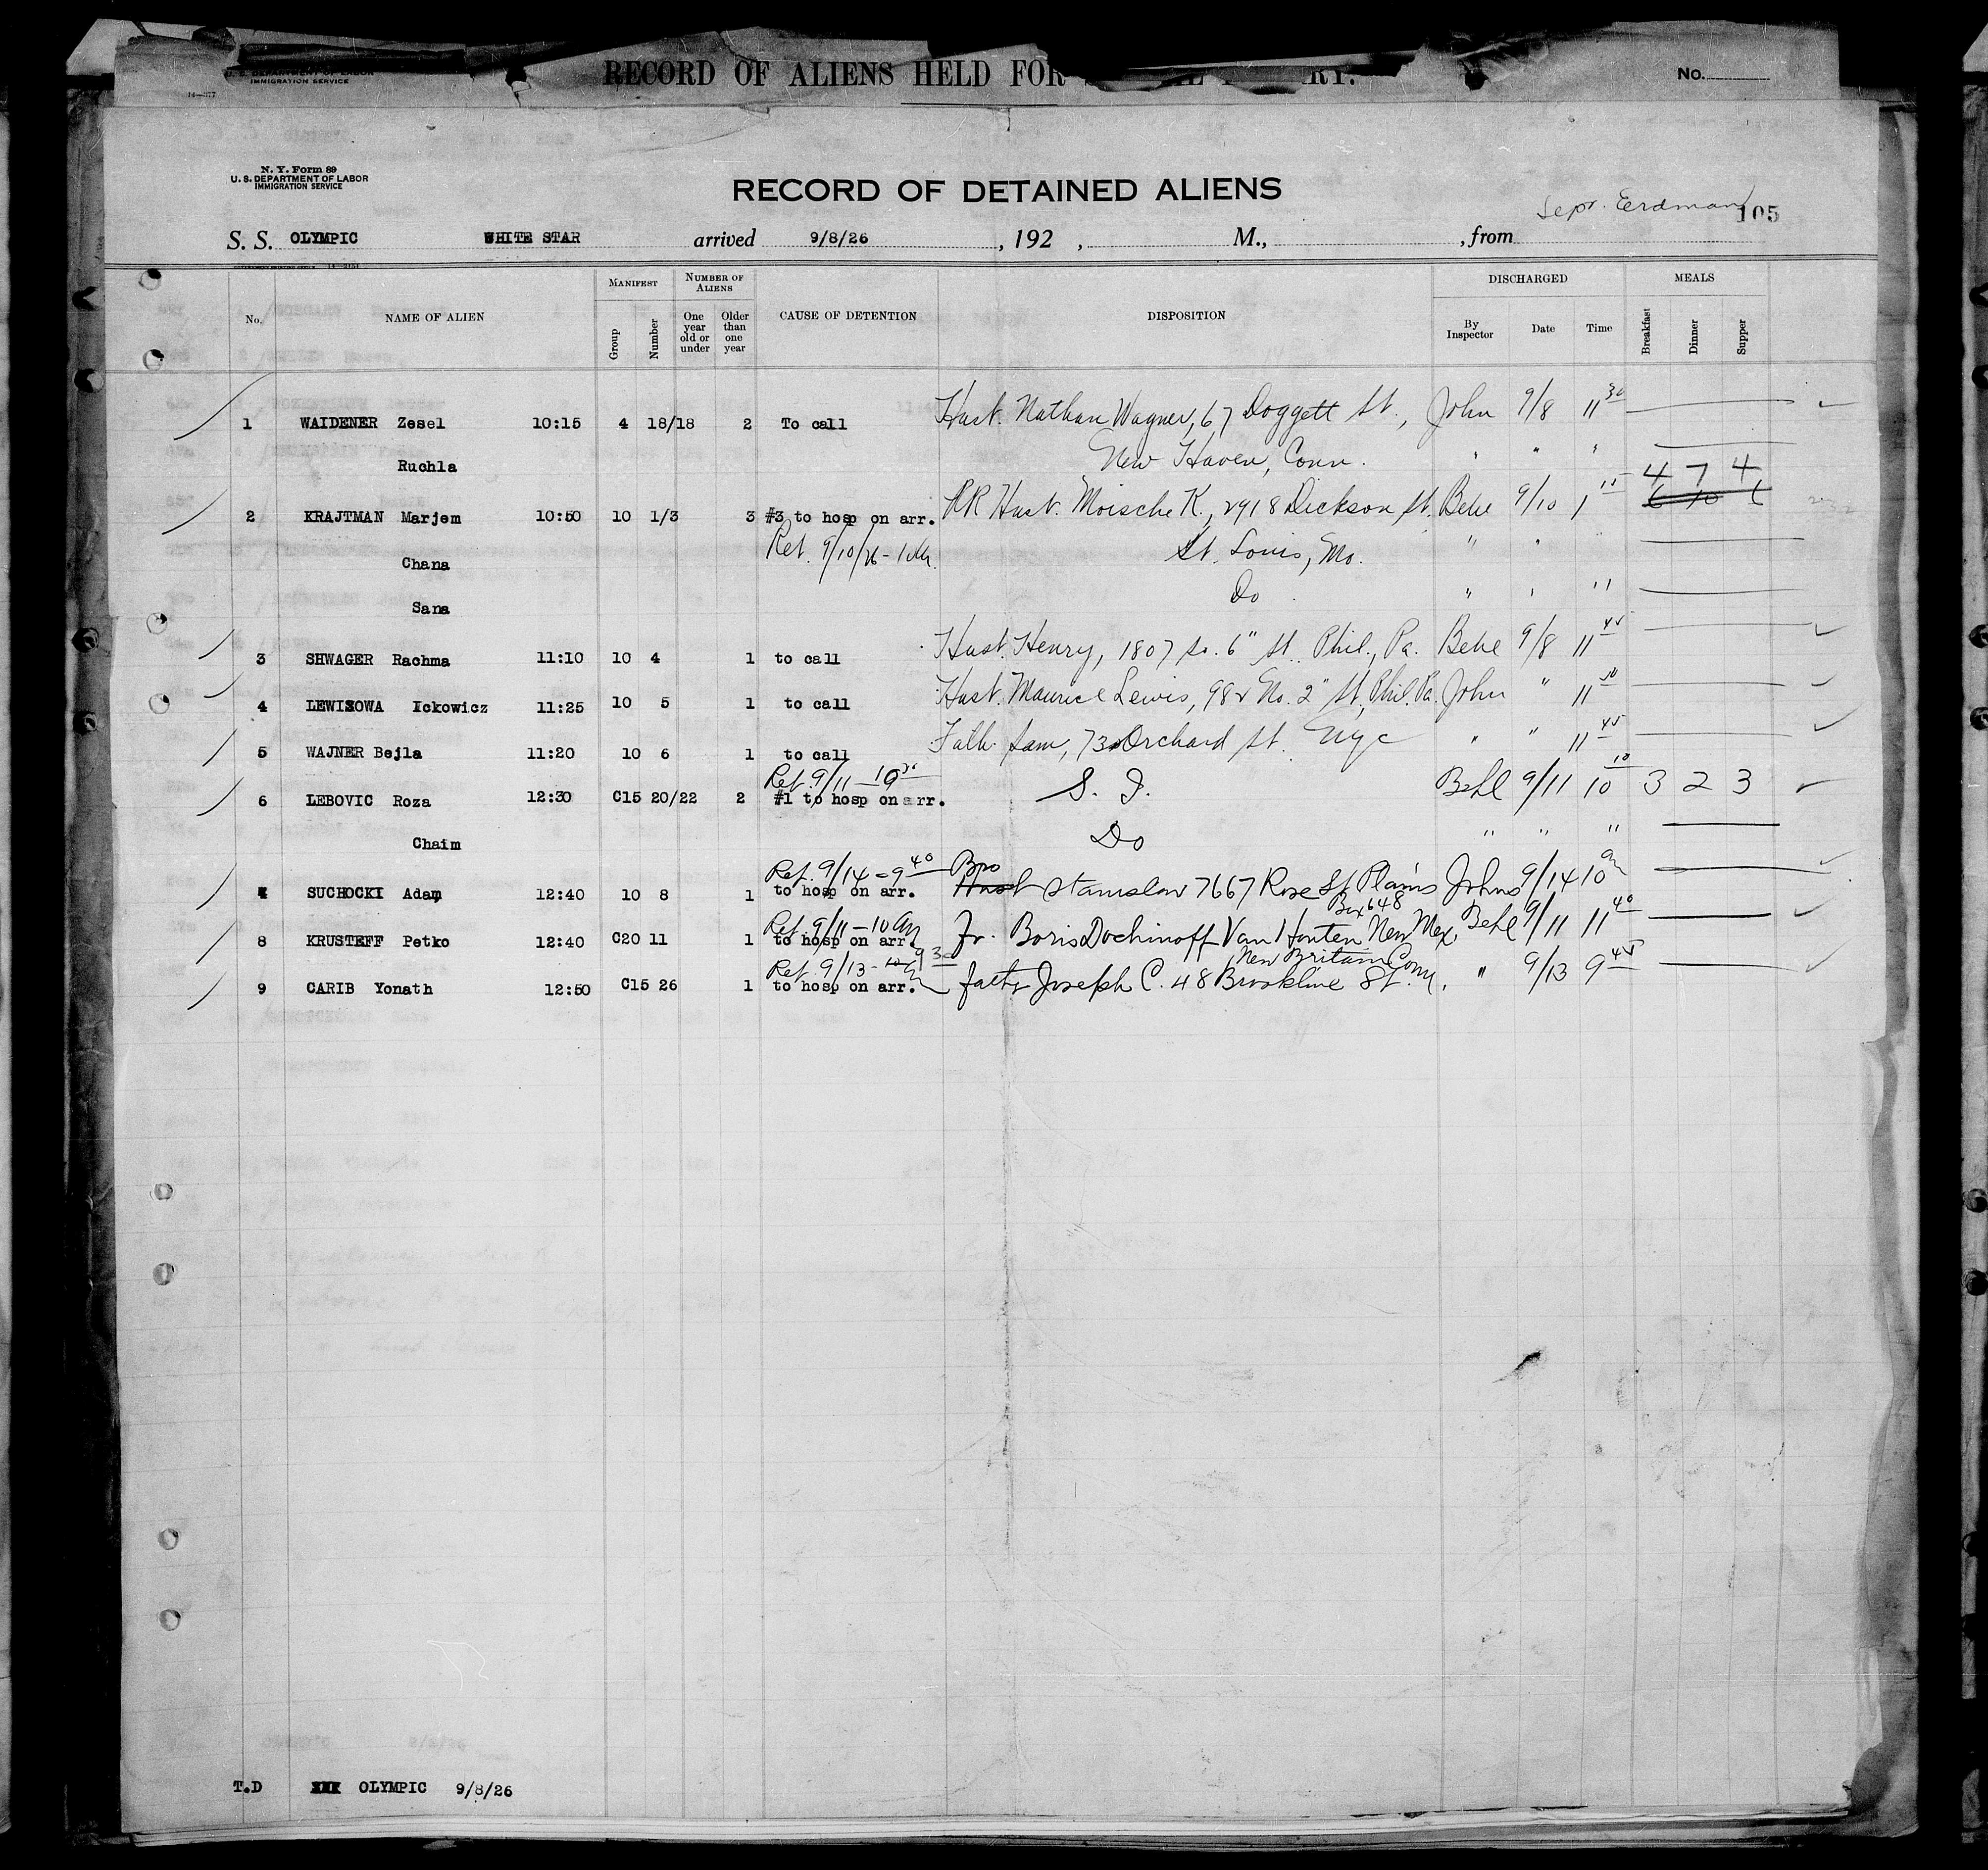 U. S. DEPARTMENT OF LABOR
IMMIGRATION SERVICE
14—377
RECORD OF ALIENS HELD FOR
No.
N. Y. Form 89
U. S. DEPARTMENT OF LABOR
IMMIGRATION SERVICE
RECORD OF DETAINED ALIENS
Erdman 105
S. S. OLYMPIC WHITE STAR arrived 9/8/26, 192 , M., , from
GOVERNMENT PRINTING OFFICE 14—2151
No. NAME OF ALIEN MANIFEST Group Number NUMBER OF ALIENS One year old or under Older than one year CAUSE OF DETENTION DISPOSITION DISCHARGED By Inspector Date Time MEALS Breakfast Dinner Supper
1 WAIDENER Zesel 10:15 4 18/18 2 To call Husb. Nathan Wagner, 67 Doggett St., John 9/8 11 30
Ruchla New Haven, Conn. " " "
4 7 4
2 KRAJTMAN Marjem 10:50 10 1/3 3 #3 to hosp on arr. RR Husb. Moische K., 2918 Dickson St. Behl 9/10 1 15 6 10 6
Ret. 9/10/26 -
Chana St. Louis, Mo. " "
Sana Do " " "
3 SHWAGER Rachma 11:10 10 4 1 to call Husb. Henry, 1807 So. 6" St. Phil., Pa. Behl 9/8 11 45
4 LEWIZOWA Ickowicz 11:25 10 5 1 to call Husb. Maurice Lewis, 982 No. 2" St. Phil. Pa. John " 11 50
5 WAJNER Bejla 11:20 10 6 1 to call Fath. Sam, 73 Orchard St. NYC " " 11 45
Ret. 9/11 - 10 30
6 LEBOVIC Roza 12:30 C15 20/22 2 #1 to hosp on arr. S. I. Behl 9/11 10 10 3 2 3
Chaim Do " " "
Ret. 9/14 - 9 40 Bro
SUCHOCKI Adam 12:40 10 8 1 to hosp on arr. Husb Stanislaw 7667 Rose St Plains Johns 9/14 10
Ret. 9/11 - 10 am Box 648
8 KRUSTEFF Petko 12:40 C20 11 1 to hosp on arr. Fr. Boris Dochinoff Van Houten New Mex. Behl 9/11 11 40
Ret. 9/13 - 9 30 New Britain Conn.
9 CARIB Yonath 12:50 C15 26 1 to hosp on arr. father Joseph C. 48 Brookline St. " 9/13 9 45
T.D XXX OLYMPIC 9/8/26